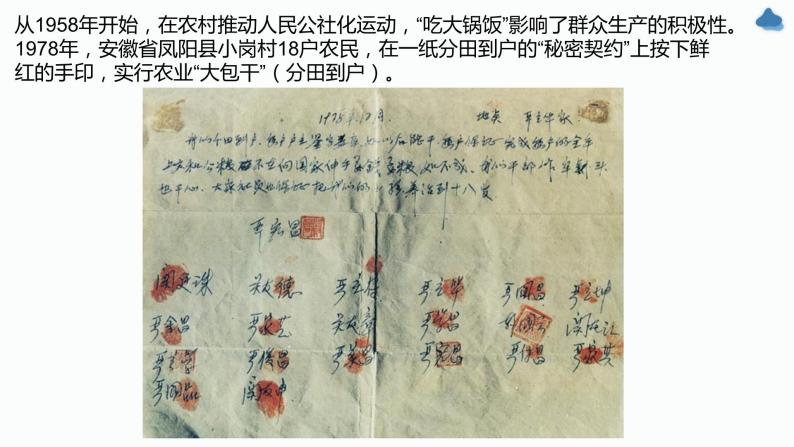 从1958年开始，在农村推动人民公社化运动，“吃大锅饭”影响了群众生产的积极性。
1978年，安徽省凤阳县小岗村18户农民，在一纸分田到户的“秘密契约”上按下鲜
红的手印，实行农业“大包干”（分田到户）。
1978年12月. 地点 严立华家
我们分田到户，每户户主签字盖章，如以后能干，每户保证完成每户的全年
上交和公粮 不在向国家伸手要钱要粮，如不成，我们干部作牢剎头
也干心，大家社员也保证把我们的小孩养活到十八岁
严宏昌
关廷珠 严立华 严国昌 严立坤
严金昌
关友申